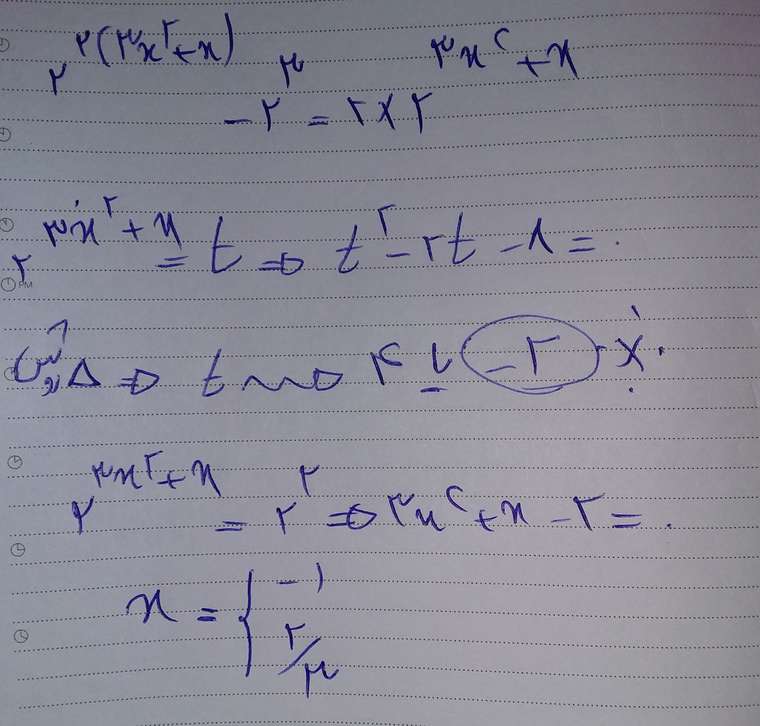 ۲^۲(۳x^۲+x) - ۲^۳ = ۲×۲^۳x^۲+x
۲^۳x^۲+x = t ⇒ t^۲ - ۲t - ۸ = ۰
روش Δ ⇒ t ⇝ ۴ یا -۲ ×
۲^۳x^۲+x = ۲^۲ ⇒ ۳x^۲+x-۲=۰
x = { -۱
۲/۳